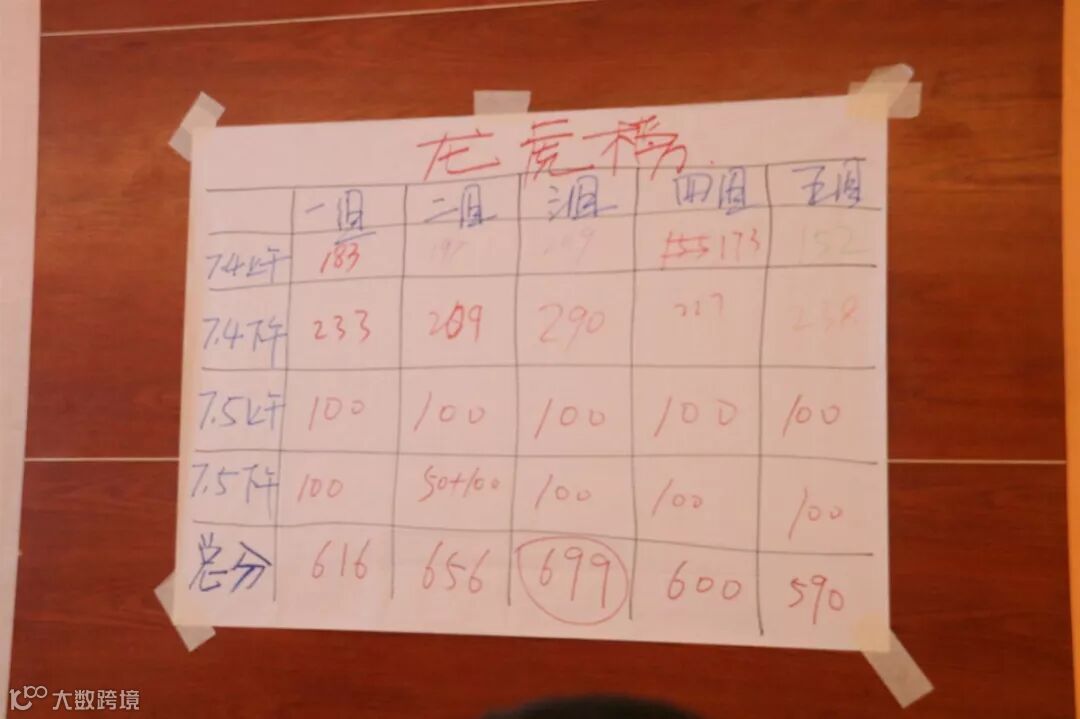 龙虎榜
一组 二组 三组 四组 五组
7.4上午 183 197 209 155 173 152
7.4下午 233 209 290 227 238
7.5上午 100 100 100 100 100
7.5下午 100 50+100 100 100 100
总分 616 656 699 600 590
大数跨境